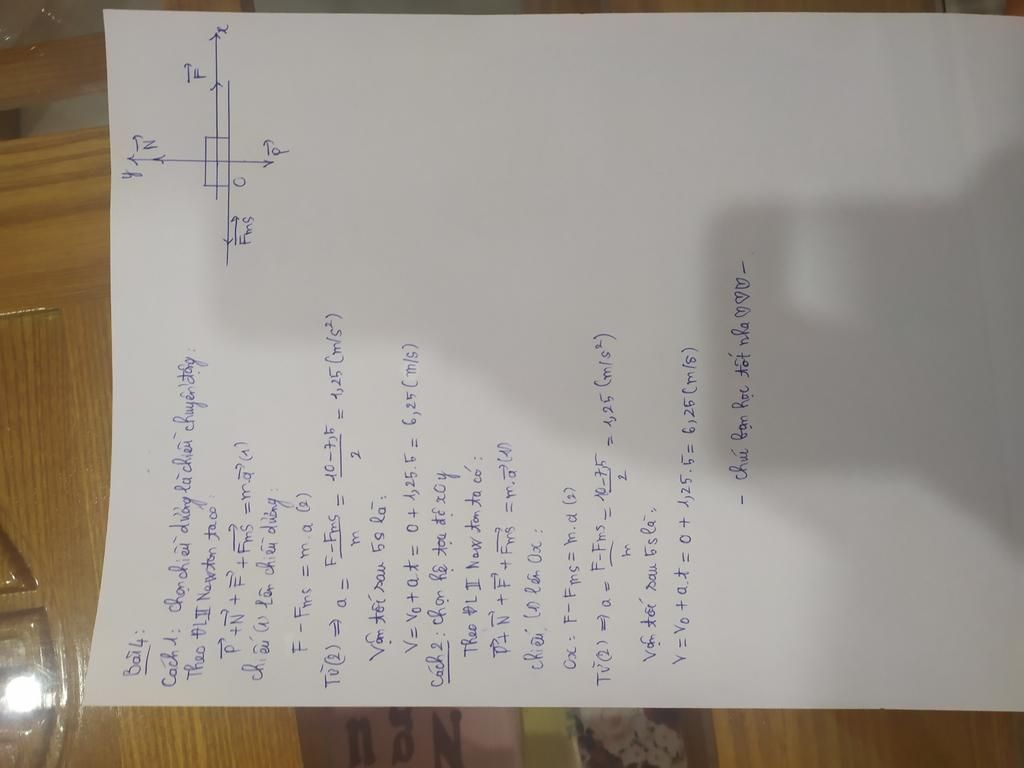 Bài 4:
Cách 1: Chọn chiều dương là chiều chuyển động:
Theo ĐL II Newton ta có:
P + N + F + Fms = m.a (1)
chiếu (1) lên chiều dương:
F - Fms = m.a (2)
Từ (2) => a = F - Fms / m = 10 - 7,5 / 2 = 1,25 (m/s²)
Vận tốc sau 5s là:
V = V0 + at = 0 + 1,25.5 = 6,25 (m/s)
Cách 2: Chọn hệ tọa độ xOy
Theo ĐL II Newton ta có:
P + N + F + Fms = m.a (1)
chiếu (1) lên Ox:
Ox: F - Fms = m.a (2)
Từ (2) => a = F - Fms / m = 10 - 7,5 / 2 = 1,25 (m/s²)
Vận tốc sau 5s là:
V = V0 + a.t = 0 + 1,25.5 = 6,25 (m/s)
- Chúc bạn học tốt nha ♡♡♡ -
y
N
F
x
O
P
Fms